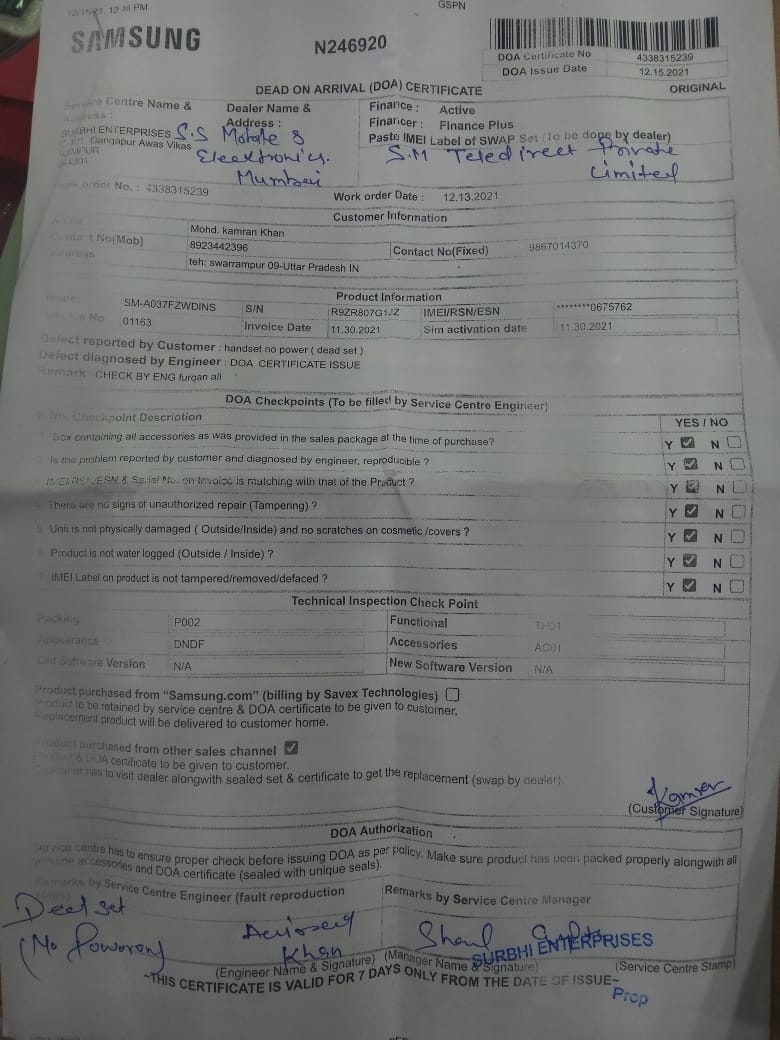 12/15/21, 12:16 PM
GSPN
SAMSUNG
N246920
DOA Certificate No 4338315239
DOA Issue Date 12.15.2021
DEAD ON ARRIVAL (DOA) CERTIFICATE
ORIGINAL
Service Centre Name &
Address :
SURBHI ENTERPRISES
Gangapur Awas Vikas
Dealer Name &
Address :
S.S Mobile &
Electronics.
Mumbai
Finance : Active
Financer : Finance Plus
Paste IMEI Label of SWAP Set (To be done by dealer)
S.M Teledirect Private
Limited
Work order No. : 4338315239
Work order Date : 12.13.2021
Customer Information
Name Mohd. kamran Khan
Contact No(Mob) 8923442396 Contact No(Fixed) 9867014370
Address teh: swarrampur 09-Uttar Pradesh IN
Product Information
Model SM-A037FZWDINS S/N R9ZR807G1JZ IMEI/RSN/ESN ********0675762
Invoice No 01163 Invoice Date 11.30.2021 Sim activation date 11.30.2021
Defect reported by Customer : handset no power ( dead set )
Defect diagnosed by Engineer : DOA CERTIFICATE ISSUE
Remark : CHECK BY ENG furqan ali
DOA Checkpoints (To be filled by Service Centre Engineer)
S.No. Checkpoint Description YES / NO
1 Box containing all accessories as was provided in the sales package at the time of purchase? Y N
2 Is the problem reported by customer and diagnosed by engineer, reproducible ? Y N
3 IMEI/RSN/ESN & Serial No. on Invoice is matching with that of the Product ? Y N
4 There are no signs of unauthorized repair (Tampering) ? Y N
5 Unit is not physically damaged ( Outside/Inside) and no scratches on cosmetic /covers ? Y N
6 Product is not water logged (Outside / Inside) ? Y N
7 IMEI Label on product is not tampered/removed/defaced ? Y N
Technical Inspection Check Point
Packing P002 Functional TH01
Appearance DNDF Accessories AC01
Old Software Version N/A New Software Version N/A
Product purchased from "Samsung.com" (billing by Savex Technologies)
Product to be retained by service centre & DOA certificate to be given to customer.
Replacement product will be delivered to customer home.
Product purchased from other sales channel
Product & DOA certificate to be given to customer.
Customer has to visit dealer alongwith sealed set & certificate to get the replacement (swap by dealer).
Kamran
(Customer Signature)
DOA Authorization
Service centre has to ensure proper check before issuing DOA as per policy. Make sure product has been packed properly alongwith all
genuine accessories and DOA certificate (sealed with unique seals).
Remarks by Service Centre Engineer (fault reproduction
Remarks by Service Centre Manager
Dead set
(No Poweron)
Khan
SURBHI ENTERPRISES
(Engineer Name & Signature) (Manager Name & Signature) (Service Centre Stamp)
~THIS CERTIFICATE IS VALID FOR 7 DAYS ONLY FROM THE DATE OF ISSUE~
Prop